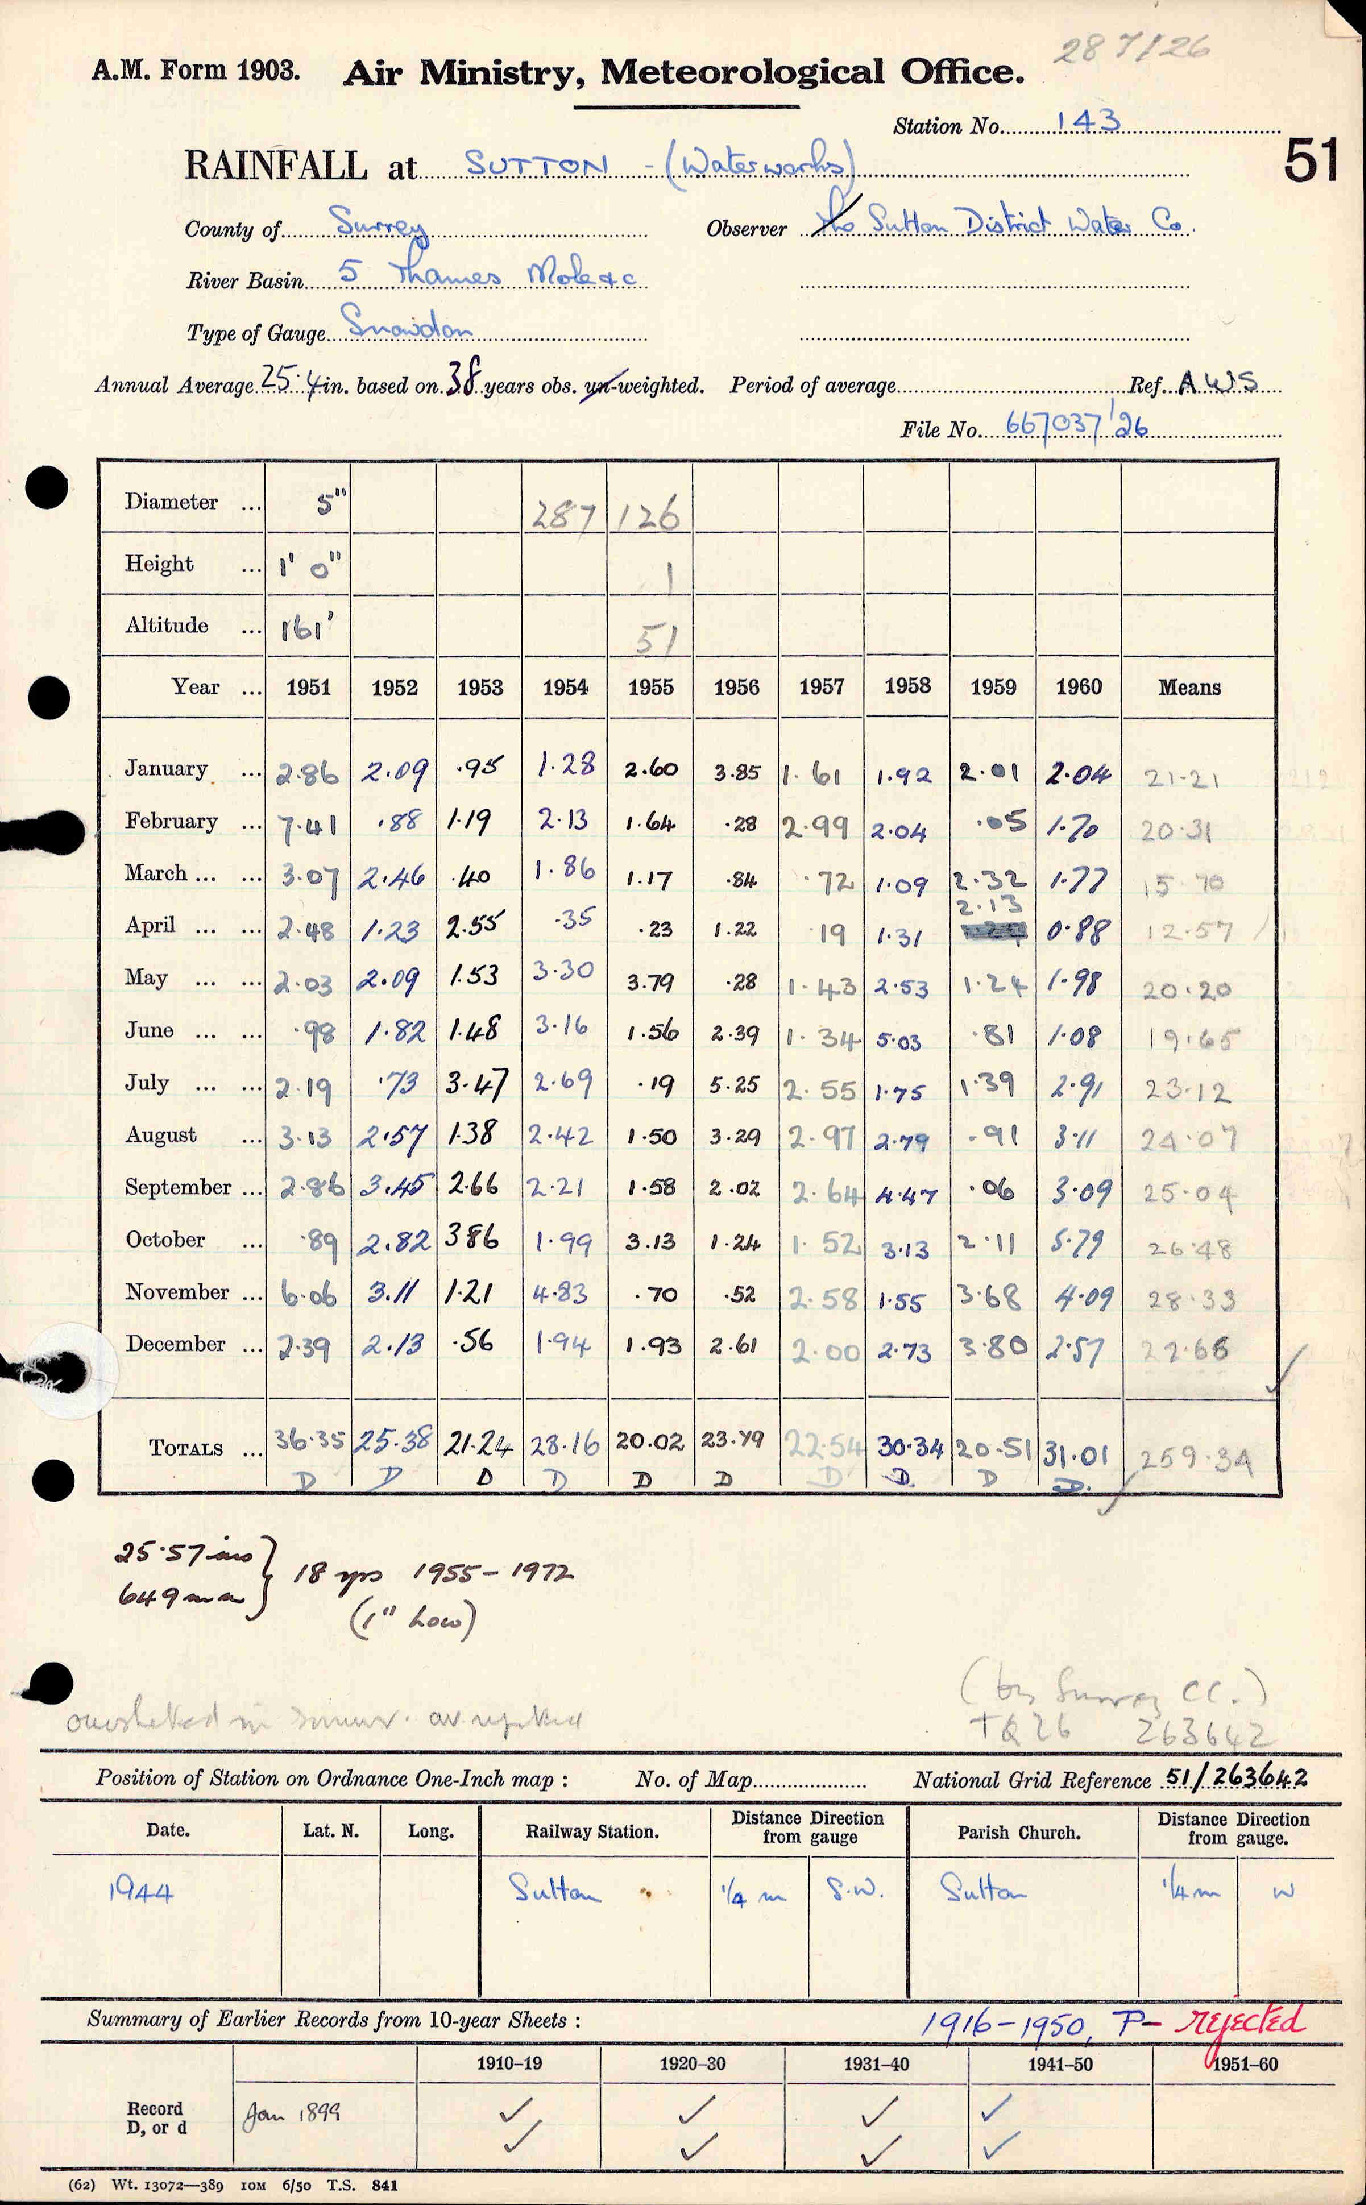 287/26
A.M. Form 1903. Air Ministry, Meteorological Office.
Station No. 143
51
RAINFALL at SUTTON - (Waterworks)
County of Surrey Observer The Sutton District Water Co.
River Basin 5 Thames Mole &c
Type of Gauge Snowdon
Annual Average 25.4 in. based on 38 years obs. un-weighted. Period of average Ref. AWS
File No. 667037/26
Diameter ... 5" 287 126
Height ... 1' 0" 1
Altitude ... 161' 51
Year ... 1951 1952 1953 1954 1955 1956 1957 1958 1959 1960 Means
January ... 2.86 2.09 .95 1.28 2.60 3.85 1.61 1.92 2.01 2.04 21.21
February ... 7.41 .88 1.19 2.13 1.64 .28 2.99 2.04 .05 1.70 20.31
March ... ... 3.07 2.46 .40 1.86 1.17 .84 .72 1.09 2.32 1.77 15.70
April ... ... 2.48 1.23 2.55 .35 .23 1.22 .19 1.31 2.13 0.88 12.57
May ... ... 2.03 2.09 1.53 3.30 3.79 .28 1.43 2.53 1.24 1.98 20.20
June ... ... .98 1.82 1.48 3.16 1.56 2.39 1.34 5.03 .81 1.08 19.65
July ... ... 2.19 .73 3.47 2.69 .19 5.25 2.55 1.75 1.39 2.91 23.12
August ... 3.13 2.57 1.38 2.42 1.50 3.29 2.97 2.79 .91 3.11 24.07
September ... 2.86 3.45 2.66 2.21 1.58 2.02 2.64 4.47 .06 3.09 25.04
October ... .89 2.82 3 86 1.99 3.13 1.24 1.52 3.13 2.11 5.79 26.48
November ... 6.06 3.11 1.21 4.83 .70 .52 2.58 1.55 3.68 4.09 28.33
December ... 2.39 2.13 .56 1.94 1.93 2.61 2.00 2.73 3.80 2.57 22.66
TOTALS ... 36.35 25.38 21.24 28.16 20.02 23.79 22.54 30.34 20.51 31.01 259.34
D D D D D D D D D D
25.57 ins } 18 yrs 1955-1972
649 mm } (1" Low)
(by Surrey CC.)
TQ 26 263642
Position of Station on Ordnance One-Inch map : No. of Map National Grid Reference 51/263642
Date. Lat. N. Long. Railway Station. Distance Direction from gauge Parish Church. Distance Direction from gauge.
1944 Sutton 1/4 m S.W. Sutton 1/4 m W
Summary of Earlier Records from 10-year Sheets : 1916-1950, P- rejected
1910-19 1920-30 1931-40 1941-50 1951-60
Record D, or d Jan 1899 ✓ ✓ ✓ ✓
✓ ✓ ✓ ✓
(62) Wt. 13072—389 10M 6/50 T.S. 841